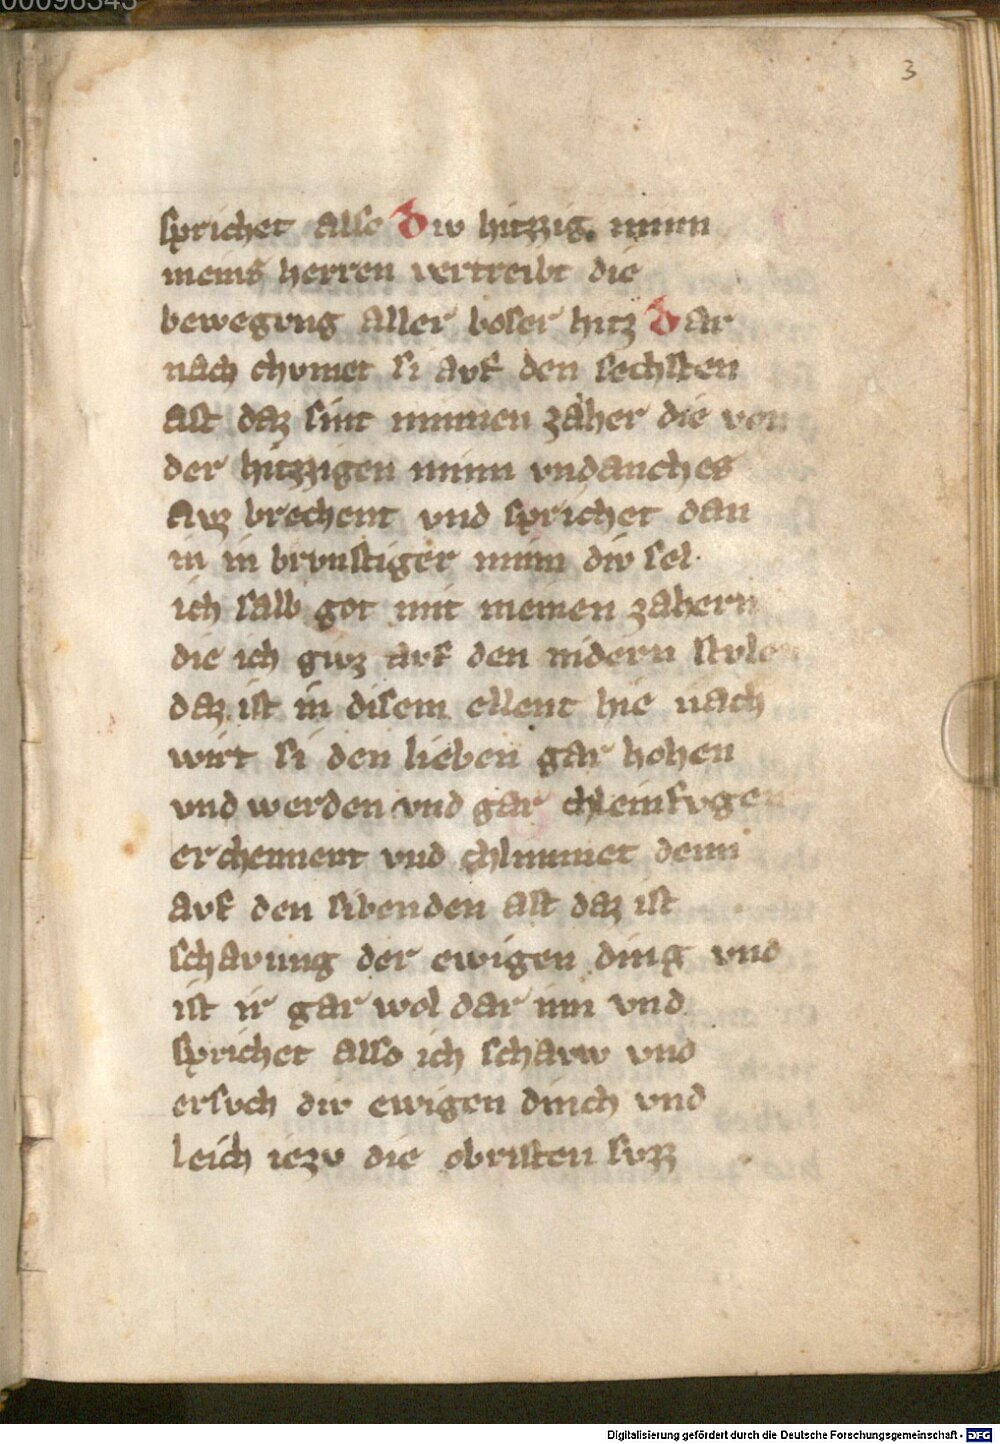 00096343
3
sprichet also Div hitzzig minn
meins herren vertreibt die
bewegvng aller boser hitz Dar
nach chvmet si avf den sechsten
ast daz sint minnen zäher die von
der hitzzigen minn vndanches
avz brechent vnd sprichet dan
in in brvnstiger minn div sel
ich salb got mit meinen zahern
die ich givz avf den nidern stvlen
daz ist in disem ellent hie nach
wirt si den lieben gar hohen
vnd werden vnd gar chleinfvgen
erchennent vnd chlimmet denn
avf den sibenden ast daz ist
schavung der ewigen ding vnd
ist ir gar wol dar inn vnd
sprichet also ich schavw vnd
ersvch div ewigen dinch vnd
leich iezv die obristen svzz
Digitalisierung gefördert durch die Deutsche Forschungsgemeinschaft - DFG